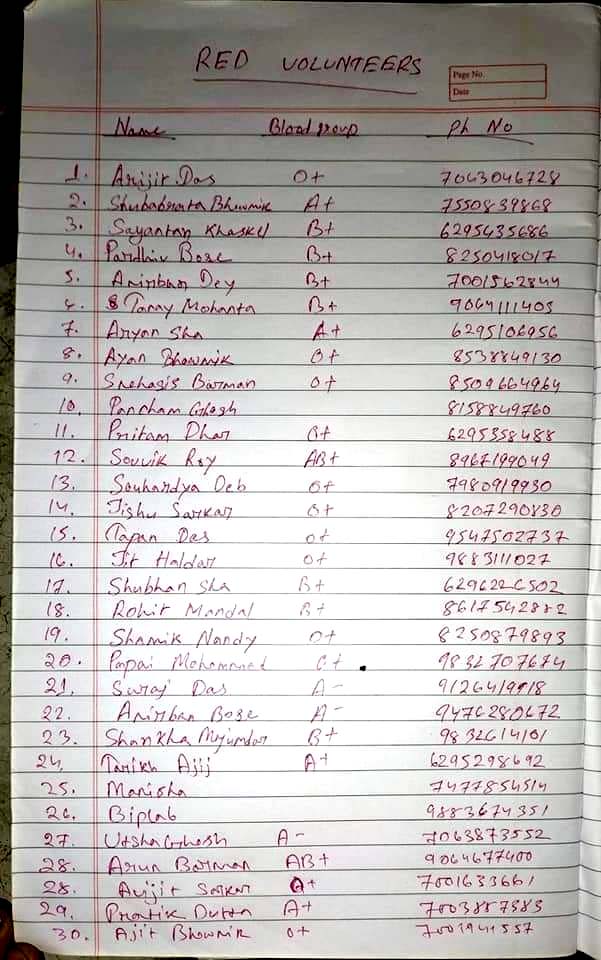 RED VOLUNTEERS
Page No.
Date
Name Blood group Ph No
1. Arijit Das O+ 7063046728
2. Shubabrata Bhowmik A+ 7550839868
3. Sayantan Khaskel B+ 6295435686
4. Pardhiv Bose B+ 8250418017
5. Anirban Dey B+ 7001562844
6. Tanay Mohanta B+ 9064111403
7. Aryan Sha A+ 6295106956
8. Ayan Bhowmik O+ 8538849130
9. Snehagis Barman O+ 8509664964
10. Pancham Ghosh 8158849760
11. Pritam Dhar 6295358488
12. Souvik Roy AB+ 8967199049
13. Souhardya Deb O+ 7980919930
14. Jishu Sarkar O+ 8207290830
15. Tapan Das O+ 9547502737
16. Jit Haldar O+ 9883111027
17. Shubhan Sha B+ 6296226502
18. Rohit Mandal B+ 8617542882
19. Shamik Nandy O+ 8250879893
20. Papai Mohammad 9832707674
21. Suraj Das A-
22. Anirban Bose A- 9476280672
23. Shankha Mujumdar B+ 9832614101
24. Tarikh Ajij A+ 6295298692
25. Manisha 7477854514
26. Biplab 9883674351
27. Utsha Ghosh A- 7063873552
28. Arun Barman AB+ 9064677400
28. Avijit Sarkar 7001633661
29. Pratik Dutta A+ 7003857383
30. Ajit Bhowmik O+